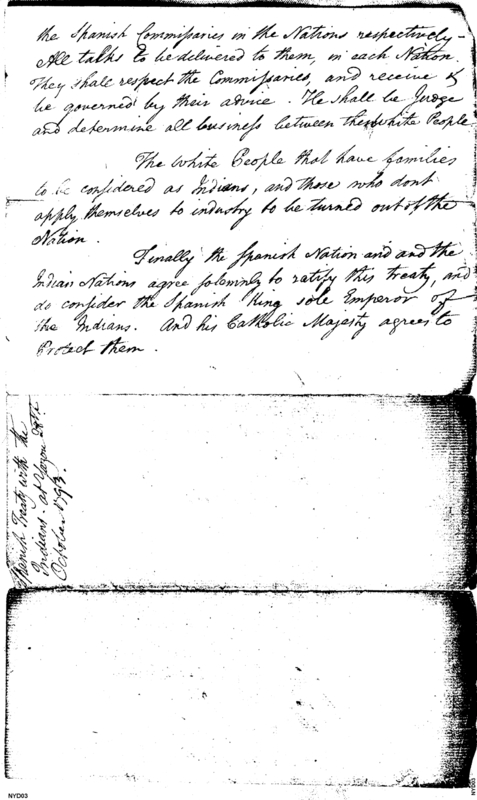 the Spanish Commissaries in the Nations respectively -
All talks to be delivered to them, in each Nation.
They shall respect the Commissaries, and receive &
be governed by their advice. He shall be Judge
and determine all business between the White People
The White People that have families
to be considered as Indians, and those who dont
apply themselves to industry to be turned out of the
Nation.
Finally the Spanish Nation and and the
Indian Nations agree solemnly to ratify this treaty, and
do consider the Spanish King sole Emperor of
the Indians. And his Catholic Majesty agrees to
Protect them.
Spanish Treaty with the
Indians - at
October 1793.
NYD03
NYD03